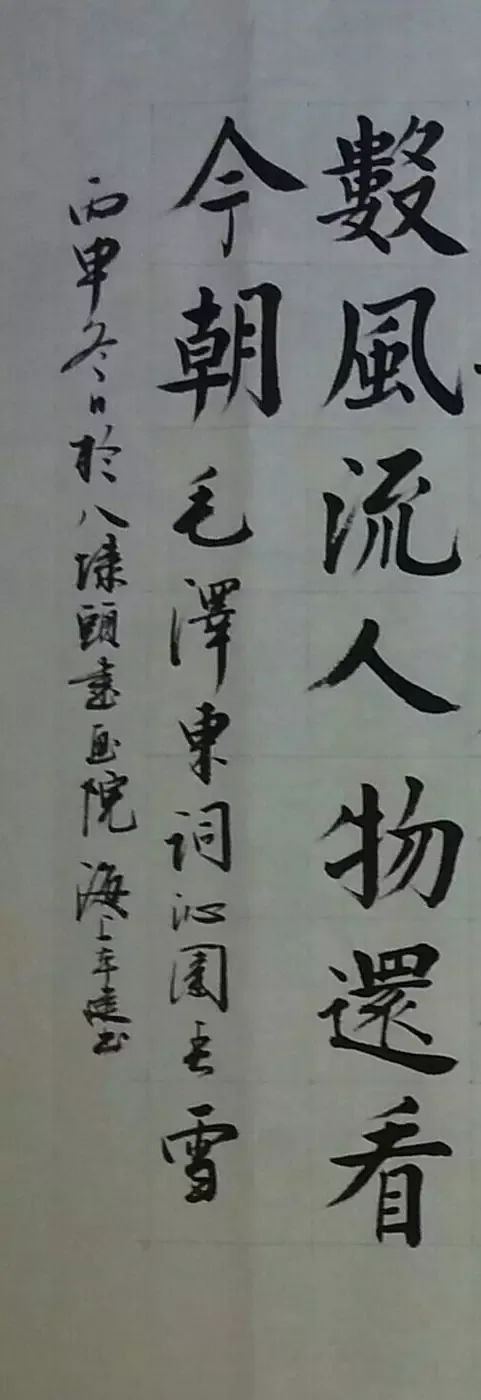 數風流人物還看
今朝 毛澤東詞沁園春雪
丙申冬日於八埭頭書畫院 海上年建書